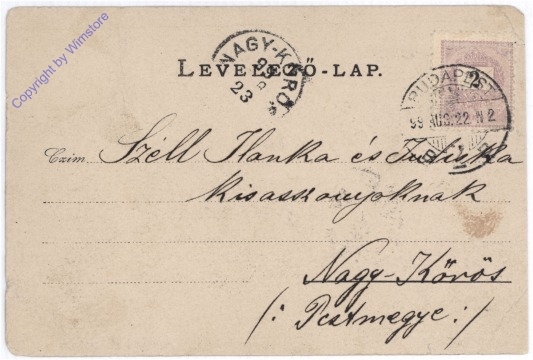 Copyright by Wimstore
NAGY-KŐRÖ
23
LEVELEZŐ-LAP.
2
BUDAPEST
99 AUG. 22 N 2
Czim Széll Ilonka és Juliska
kisasszonyoknak
Nagy-Kőrös
/: Pestmegye :/